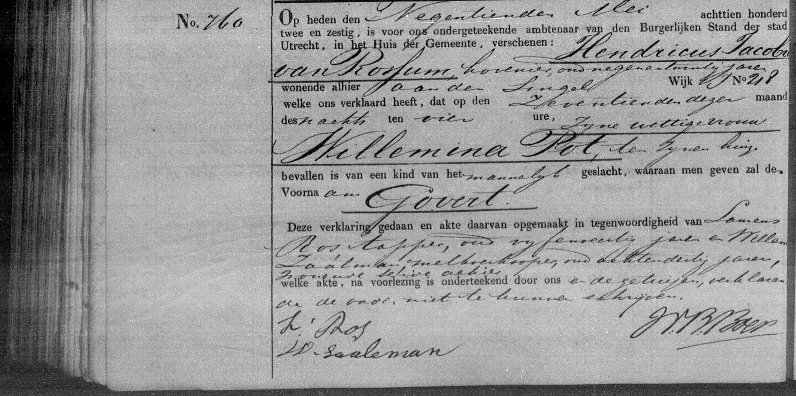 No. 760
Op heden den Negentienden Mei achttien honderd
twee en zestig, is voor ons ondergeteekende ambtenaar van den Burgerlijken Stand der stad
Utrecht, in het Huis der Gemeente, verschenen: Hendricus Jacobus
van Rossum, hovenier, oud negenentwintig jaren
wonende alhier aan den Singel Wijk No 218
welke ons verklaard heeft, dat op den Zeventienden dezer maand
des nachts ten vier ure, Zijne wettige vrouw
Willemina Pot, ten Zijnen huize
bevallen is van een kind van het mannelijk geslacht, waaraan men geven zal de
Voorna am Govert.
Deze verklaring gedaan en akte daarvan opgemaakt in tegenwoordigheid van
Ros tapper, oud vijfenveertig jaren en Willem
Zaalman, melkverkooper, oud achtendertig jaren,
wonende beide alhier
welke akte, na voorlezing is onderteekend door ons en de getuigen, verklarende
de vader niet te kunnen schrijven.
L. Ros
W. Saaleman